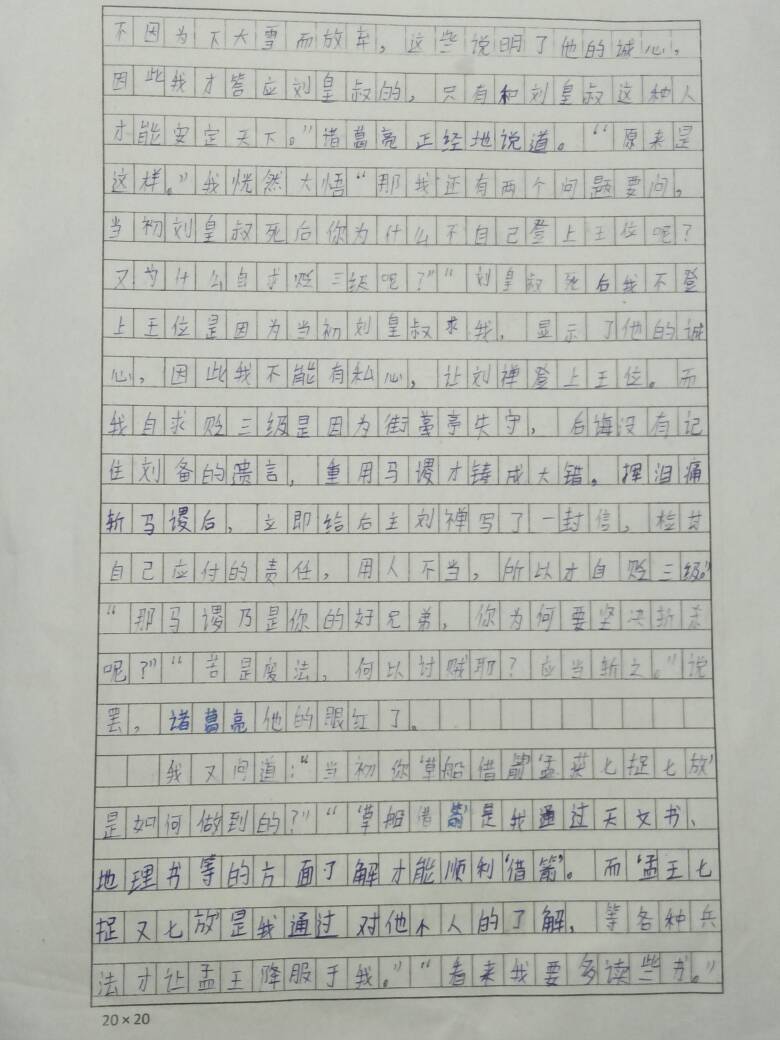 不因为下大雪而放弃，这些说明了他的诚心，
因此我才答应刘皇叔的，只有和刘皇叔这种人
才能安定天下。”诸葛亮正经地说道。“原来是
这样。”我恍然大悟“那我还有两个问题要问，
当初刘皇叔死后你为什么不自己登上王位呢？
又为什么自求贬三级呢？”“刘皇叔死后我不登
上王位是因为当初刘皇叔求我，显示了他的诚
心，因此我不能有私心，让刘禅登上王位。而
我自求贬三级是因为街葶亭失守，后悔没有记
住刘备的遗言，重用马谡才铸成大错。挥泪痛
斩马谡后，立即给后主刘禅写了一封信，检讨
自己应付的责任，用人不当，所以才自贬三级”
“那马谡乃是你的好兄弟，你为何要坚决斩杀
呢？”“苦是废法，何以讨贼耶？应当斩之。”说
罢，诸葛亮他的眼红了。
我又问道：“当初你‘草船借箭’‘孟获七捉七放’
是如何做到的？”“‘草船借箭’是我通过天文书、
地理书等的方面了解才能顺利‘借箭’。而‘孟王七
捉又七放’是我通过对他个人的了解，等各种兵
法才让孟王降服于我。”“看来我要多读些书。”
20×20